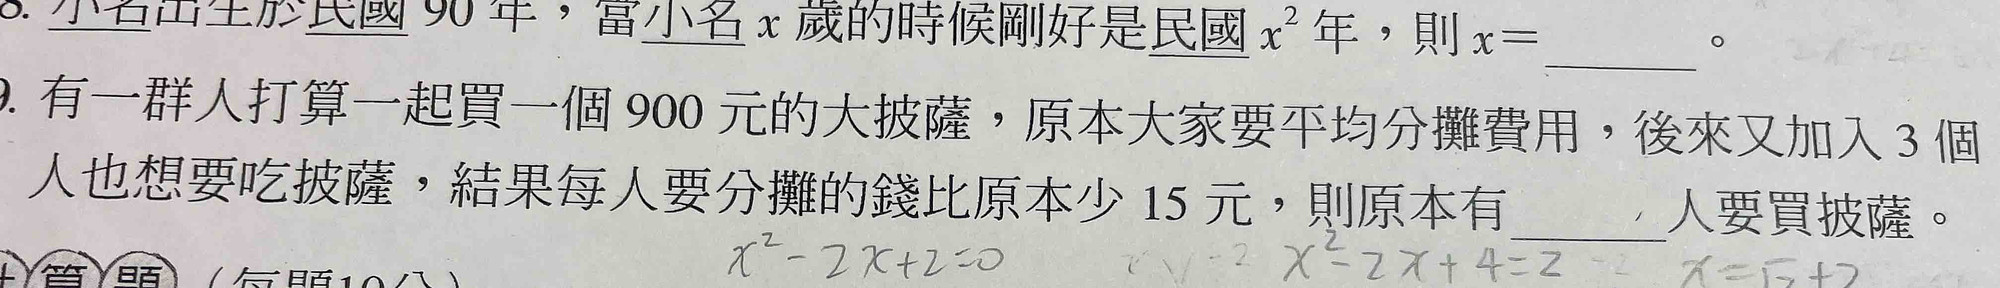 8. 小名出生於民國 90 年，當小名 x 歲的時候剛好是民國 x² 年，則 x=______。
9. 有一群人打算一起買一個 900 元的大披薩，原本大家要平均分攤費用，後來又加入 3 個
人也想要吃披薩，結果每人要分攤的錢比原本少 15 元，則原本有______人要買披薩。
x²-2x+2=0 x²-2x+4=2
計算題（每題10分）